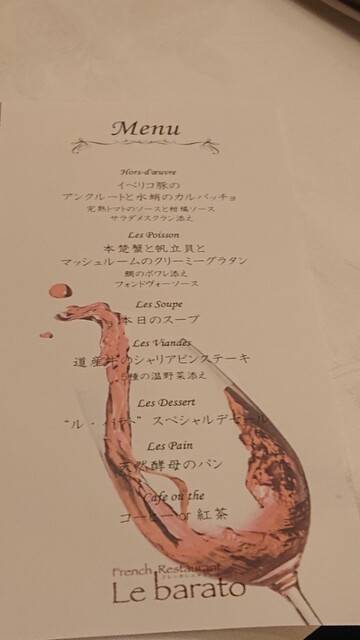 Menu
Hors-d'œuvre
イベリコ豚の
アンクルートと水蛸のカルパッチョ
完熟トマトのソースと柑橘ソース
サラダメスクラン添え
Les Poisson
本楚蟹と帆立貝と
マッシュルームのクリーミーグラタン
鯛のポワレ添え
フォンドヴォーソース
Les Soupe
本日のスープ
Les Viandes
道産牛のシャリアピンステーキ
種の温野菜添え
Les Dessert
"ル・バラト" スペシャルデセール
Les Pain
天然酵母のパン
Cafe ou the
コーヒー or 紅茶
French Restaurant
Le barato